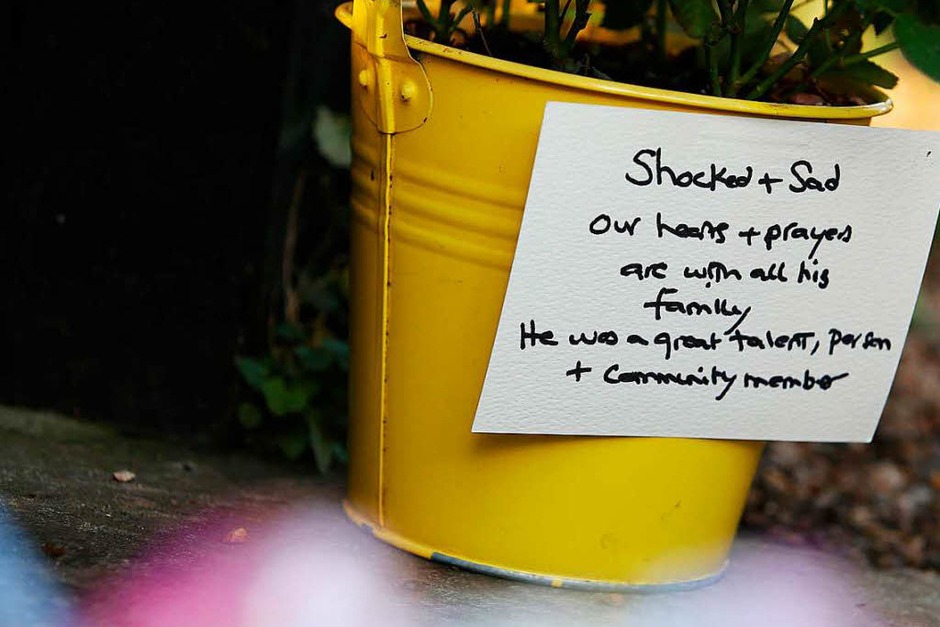 Shocked + Sad
Our hearts + prayers
are with all his
family
He was a great talent, person
+ Community member